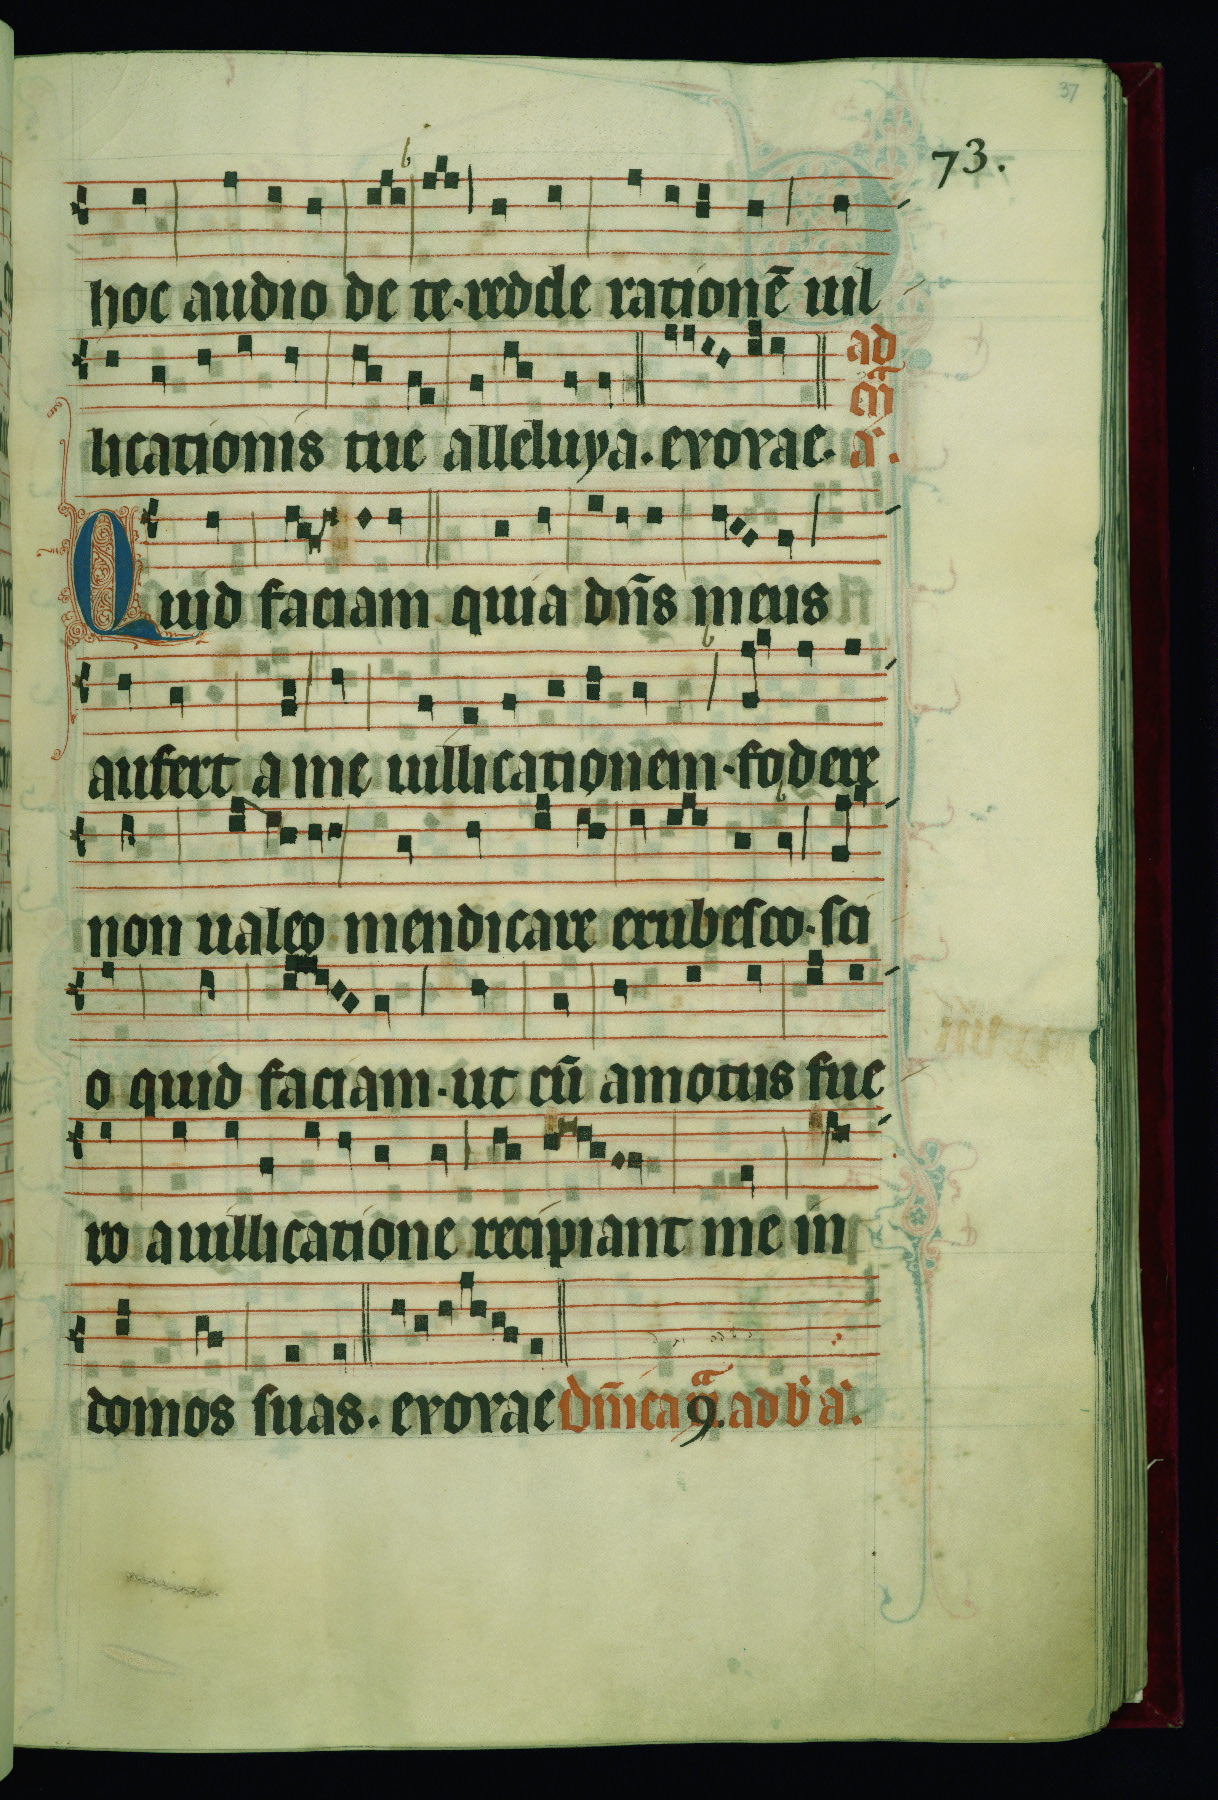 37
73.
hoc audio de te. redde rationē uil
licationis tue alleluya. evovae. ad
a᷑.
Quid faciam quia dn̄s meus
aufert a me uillicationem. fodere
non ualeo mendicare erubesco. sci
o quid faciam. ut cū amotus fue
ro a uillicatione recipiant me in
domos suas. evovae Dn̄ica 9. ad b a᷑.